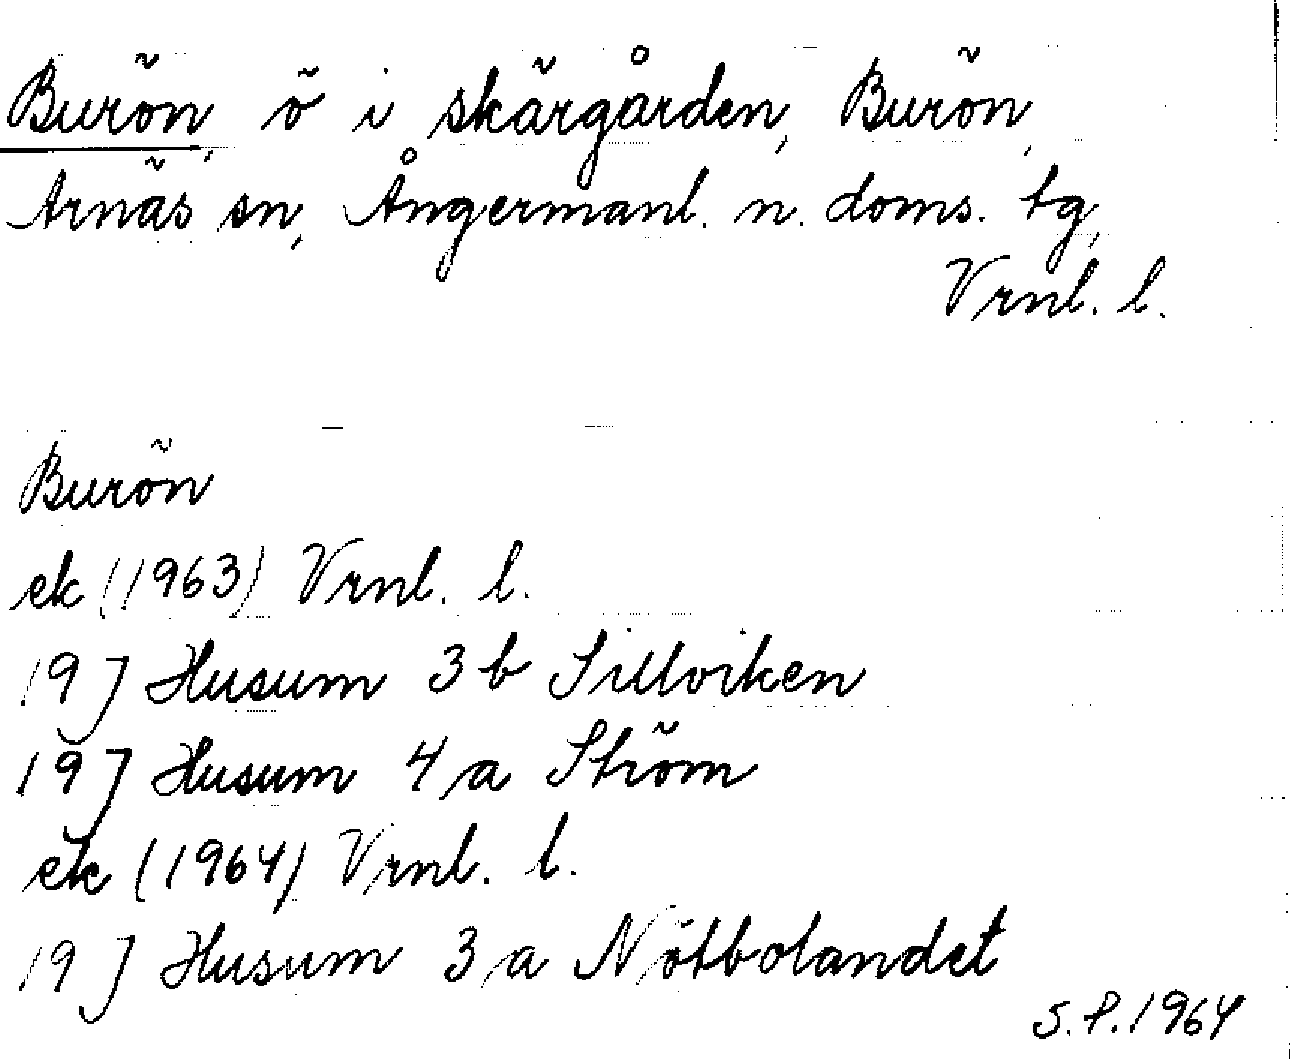 Burön, ö i skärgården, Burön,
Arnäs sn, Ångermanl. n. doms. tg,
Vrnl. l.
Burön
ek (1963) Vrnl. l.
19 J Husum 3 b Sillviken
19 J Husum 4 a Ström
ek (1964) Vrnl. l.
19 J Husum 3 a Nötbolandet
S.P. 1964